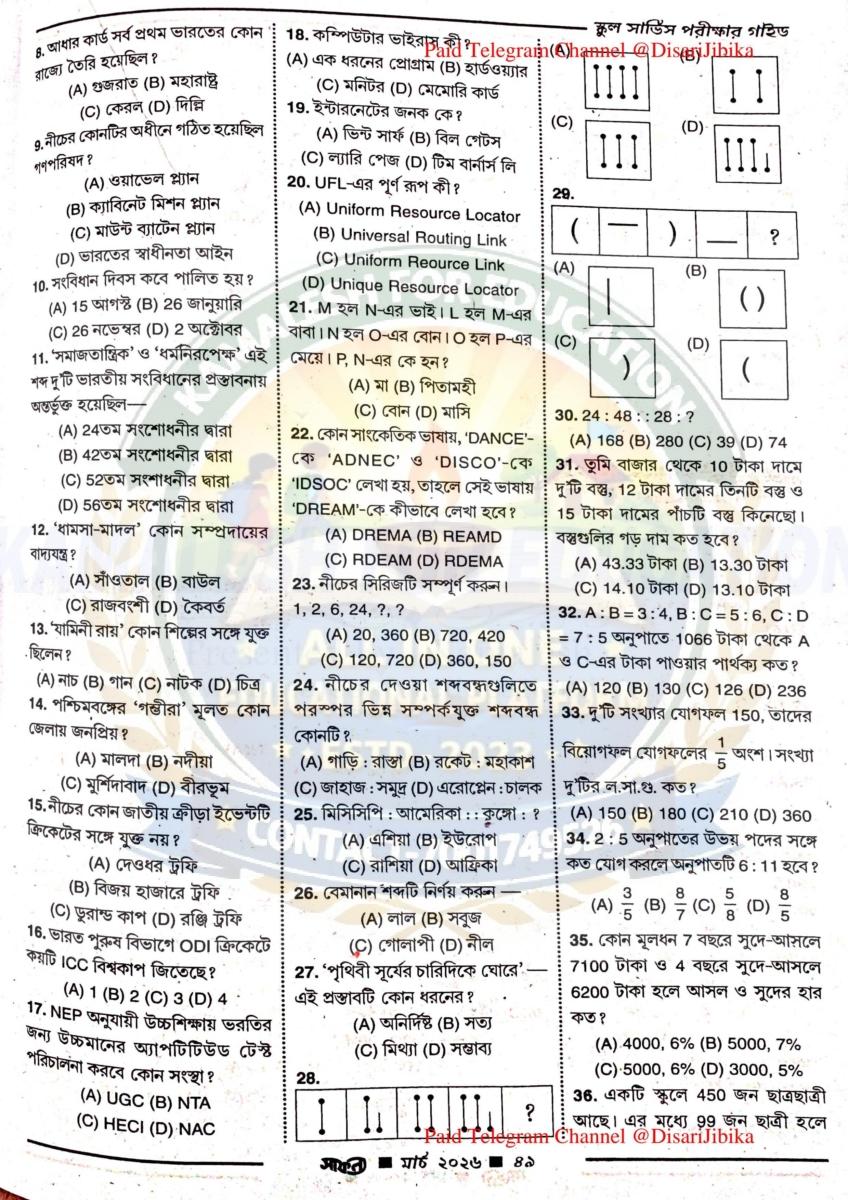 স্কুল সার্ভিস পরীক্ষার গাইড
Paid Telegram Channel @DisariJibika
8. আধার কার্ড সর্ব প্রথম ভারতের কোন
রাজ্যে তৈরি হয়েছিল ?
(A) গুজরাত (B) মহারাষ্ট্র
(C) কেরল (D) দিল্লি
9. নীচের কোনটির অধীনে গঠিত হয়েছিল
গণপরিষদ ?
(A) ওয়াভেল প্ল্যান
(B) ক্যাবিনেট মিশন প্ল্যান
(C) মাউন্ট ব্যাটেন প্ল্যান
(D) ভারতের স্বাধীনতা আইন
10. সংবিধান দিবস কবে পালিত হয় ?
(A) 15 আগস্ট (B) 26 জানুয়ারি
(C) 26 নভেম্বর (D) 2 অক্টোবর
11. ‘সমাজতান্ত্রিক’ ও ‘ধর্মনিরপেক্ষ’ এই
শব্দ দু’টি ভারতীয় সংবিধানের প্রস্তাবনায়
অন্তর্ভুক্ত হয়েছিল—
(A) 24তম সংশোধনীর দ্বারা
(B) 42তম সংশোধনীর দ্বারা
(C) 52তম সংশোধনীর দ্বারা
(D) 56তম সংশোধনীর দ্বারা
12. ‘ধামসা-মাদল’ কোন সম্প্রদায়ের
বাদ্যযন্ত্র ?
(A) সাঁওতাল (B) বাউল
(C) রাজবংশী (D) কৈবর্ত
13. ‘যামিনী রায়’ কোন শিল্পের সঙ্গে যুক্ত
ছিলেন ?
(A) নাচ (B) গান (C) নাটক (D) চিত্র
14. পশ্চিমবঙ্গের ‘গম্ভীরা’ মূলত কোন
জেলায় জনপ্রিয় ?
(A) মালদা (B) নদীয়া
(C) মুর্শিদাবাদ (D) বীরভূম
15. নীচের কোন জাতীয় ক্রীড়া ইভেন্টটি
ক্রিকেটের সঙ্গে যুক্ত নয় ?
(A) দেওধর ট্রফি
(B) বিজয় হাজারে ট্রফি
(C) ডুরান্ড কাপ (D) রঞ্জি ট্রফি
16. ভারত পুরুষ বিভাগে ODI ক্রিকেটে
কয়টি ICC বিশ্বকাপ জিতেছে ?
(A) 1 (B) 2 (C) 3 (D) 4
17. NEP অনুযায়ী উচ্চশিক্ষায় ভরতির
জন্য উচ্চমানের অ্যাপটিটিউড টেস্ট
পরিচালনা করবে কোন সংস্থা ?
(A) UGC (B) NTA
(C) HECI (D) NAC
18. কম্পিউটার ভাইরাস কী ?
(A) এক ধরনের প্রোগ্রাম (B) হার্ডওয়্যার
(C) মনিটর (D) মেমোরি কার্ড
19. ইন্টারনেটের জনক কে ?
(A) ভিন্ট সার্ফ (B) বিল গেটস
(C) ল্যারি পেজ (D) টিম বার্নার্স লি
20. UFL-এর পূর্ণ রূপ কী ?
(A) Uniform Resource Locator
(B) Universal Routing Link
(C) Uniform Reource Link
(D) Unique Resource Locator
21. M হল N-এর ভাই। L হল M-এর
বাবা। N হল O-এর বোন। O হল P-এর
মেয়ে। P, N-এর কে হন ?
(A) মা (B) পিতামহী
(C) বোন (D) মাসি
22. কোন সাংকেতিক ভাষায়, ‘DANCE’-
কে ‘ADNEC’ ও ‘DISCO’-কে
‘IDSOC’ লেখা হয়, তাহলে সেই ভাষায়
‘DREAM’-কে কীভাবে লেখা হবে ?
(A) DREMA (B) REAMD
(C) RDEAM (D) RDEMA
23. নীচের সিরিজটি সম্পূর্ণ করুন।
1, 2, 6, 24, ?, ?
(A) 20, 360 (B) 720, 420
(C) 120, 720 (D) 360, 150
24. নীচের দেওয়া শব্দবন্ধগুলিতে
পরস্পর ভিন্ন সম্পর্কযুক্ত শব্দবন্ধ
কোনটি ?
(A) গাড়ি : রাস্তা (B) রকেট : মহাকাশ
(C) জাহাজ : সমুদ্র (D) এরোপ্লেন : চালক
25. মিসিসিপি : আমেরিকা : : কুঙ্গো : ?
(A) এশিয়া (B) ইউরোপ
(C) রাশিয়া (D) আফ্রিকা
26. বেমানান শব্দটি নির্ণয় করুন —
(A) লাল (B) সবুজ
(C) গোলাপী (D) নীল
27. ‘পৃথিবী সূর্যের চারিদিকে ঘোরে’ —
এই প্রস্তাবটি কোন ধরনের ?
(A) অনির্দিষ্ট (B) সত্য
(C) মিথ্যা (D) সম্ভাব্য
28.
?
(A) (B)
(C) (D)
29.
( — ) — ?
(A) | (B) ( )
(C) ) (D) (
30. 24 : 48 : : 28 : ?
(A) 168 (B) 280 (C) 39 (D) 74
31. তুমি বাজার থেকে 10 টাকা দামে
দু’টি বস্তু, 12 টাকা দামের তিনটি বস্তু ও
15 টাকা দামের পাঁচটি বস্তু কিনেছো।
বস্তুগুলির গড় দাম কত হবে ?
(A) 43.33 টাকা (B) 13.30 টাকা
(C) 14.10 টাকা (D) 13.10 টাকা
32. A : B = 3 : 4, B : C = 5 : 6, C : D
= 7 : 5 অনুপাতে 1066 টাকা থেকে A
ও C-এর টাকা পাওয়ার পার্থক্য কত ?
(A) 120 (B) 130 (C) 126 (D) 236
33. দু’টি সংখ্যার যোগফল 150, তাদের
বিয়োগফল যোগফলের 1/5 অংশ। সংখ্যা
দু’টির ল.সা.গু. কত ?
(A) 150 (B) 180 (C) 210 (D) 360
34. 2 : 5 অনুপাতের উভয় পদের সঙ্গে
কত যোগ করলে অনুপাতটি 6 : 11 হবে ?
(A) 3/5 (B) 8/7 (C) 5/8 (D) 8/5
35. কোন মূলধন 7 বছরে সুদে-আসলে
7100 টাকা ও 4 বছরে সুদে-আসলে
6200 টাকা হলে আসল ও সুদের হার
কত ?
(A) 4000, 6% (B) 5000, 7%
(C) 5000, 6% (D) 3000, 5%
36. একটি স্কুলে 450 জন ছাত্রছাত্রী
আছে। এর মধ্যে 99 জন ছাত্রী হলে
Paid Telegram Channel @DisariJibika
মার্চ ২০২৬ ■ ৪৯